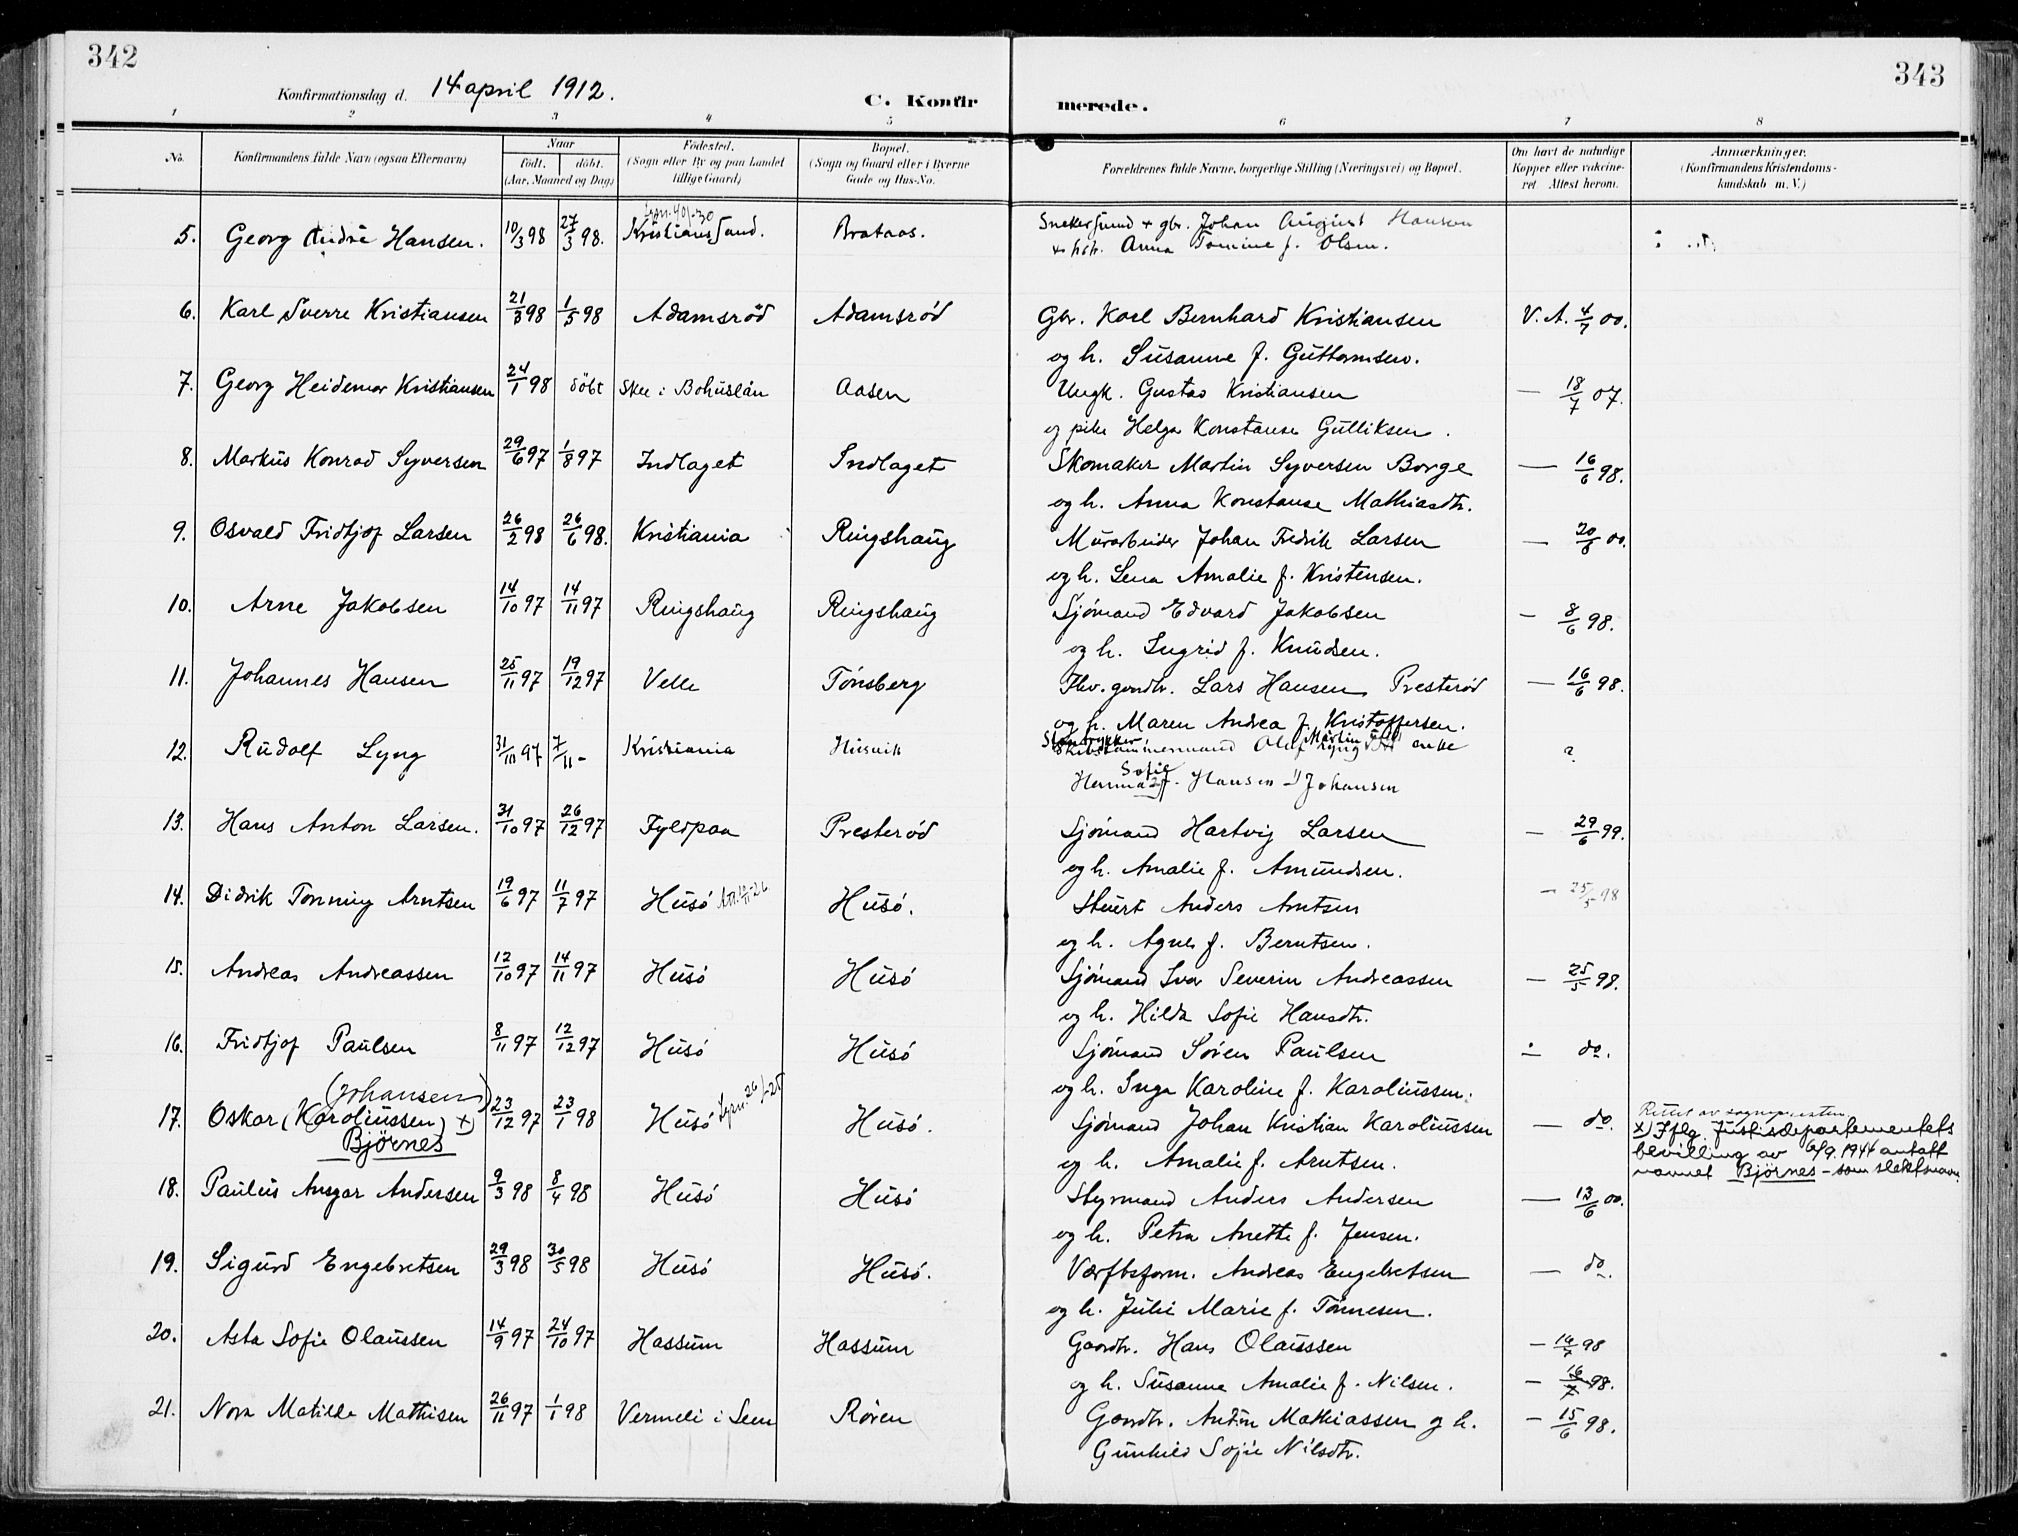 342
343
Konfirmationsdag d. 14 april 1912.
C. Konfir merede.
1 2 3 4 5 6 7 8
No. Konfirmandens fulde Navn (ogsaa Efternavn) Naar født. døbt. (Aar, Maaned og Dag) Fødested. (Sogn eller By og paa Landet tillige Gaard) Bopæl. (Sogn og Gaard eller i Byerne Gade og Hus-No. Forældrenes fulde Navne, borgerlige Stilling (Næringsvei) og Bopæl. Om havt de naturlige Kopper eller vakcineret. Attest herom. Anmærkninger. (Konfirmandens Kristendomskundskab m. V.)
5. Georg André Hansen. 10/3 98 27/3 98. Kristianssand. Brataas. Johan August Hansen
Anna Tomine f. Olsen.
6. Karl Sverre Kristiansen 21/3 98 1/5 98 Adamsrød Adamsrød Gbr. Karl Bernhard Kristiansen V. A. 4/7 00.
og h. Susanne f. Guttormsen.
7. Georg Heidemar Kristiansen 24/1 98 döbt Skee i Bohuslän Aasen Ungk. Gustav Kristiansen — 18/7 07.
og pike Helga Konstanse Gulliksen.
8. Markus Konrad Syversen 29/6 97 1/8 97 Indlaget Indlaget Skomaker Martin Syversen Borge — 16/6 98.
og h. Anna Konstanse Mathiasdtr.
9. Osvald Fridtjof Larsen 26/2 98 26/6 98. Kristiania Ringshaug Murarbeider Johan Fredrik Larsen — 20/6 00.
og h. Lena Amalie f. Kristensen.
10. Arne Jakobsen 14/10 97 14/11 97 Ringshaug Ringshaug Sjömand Edvard Jakobsen — 8/6 98.
og h. Ingrid f. Knudsen.
11. Johannes Hansen 25/11 97 19/12 97 Velle Tönsberg Fhv. gaardbr. Lars Hansen Presteröd — 16/6 98.
og h. Maren Andrea f. Kristoffersen.
12. Rudolf Lyng 31/10 97 7/11 - Kristiania Husvik Olaf Martin Lyng enke ?
Sofie
f. Hansen Johansen
13. Hans Anton Larsen. 31/10 97 26/12 97 Fyldpaa Presteröd Sjömand Hartvig Larsen — 29/6 99.
og h. Amalie f. Amundsen.
14. Didrik Tonning Arntsen 19/6 97 11/7 97 Husö Husö. Stuert Anders Arntsen — 25/5 98
og h. Agnes f. Berntsen.
15. Andreas Andreassen 12/10 97 14/11 97 Husö Husö Sjömand Ivar Severin Andreassen — 25/5 98.
og h. Hilda Sofie Hansdtr.
16. Fridtjof Paulsen 8/11 97 12/12 97 Husö Husö Sjömand Sören Paulsen — do.
og h. Inga Karoline f. Karoliussen.
(Johansen)
17. Oskar (Karoliussen) x) 23/12 97 23/1 98 Husö Husö. Sjömand Johan Kristian Karoliussen — do.
Björnes
og h. Amalie f. Arntsen.
Rettet av sognepresten
x) Iflg. Justisdepartementets
bevilling av 6/9. 1944 antatt
navnet Björnes – som slektsnavn.
18. Paulus Ansgar Andersen 9/3 98 8/4 98 Husö Husö Styrmand Anders Andersen — 13/6 00.
og h. Petra Anette f. Jensen.
19. Sigurd Engebretsen 29/3 98 30/5 98 Husö Husö. Værftsform. Andreas Engebretsen — do.
og h. Julie Marie f. Tönnesen.
20. Asta Sofie Olaussen 14/9 97 24/10 97 Hassum Hassum Gaardbr. Hans Olaussen — 16/7 98
og h. Susanne Amalie f. Nilsen. — 16/7 98.
21. Nora Matilde Mathisen 26/11 97 1/1 98 Vermeli i Sem Rören Gaardbr. Anton Mathiassen og h. — 15/6 98.
Gunhild Sofie Nilsdtr.